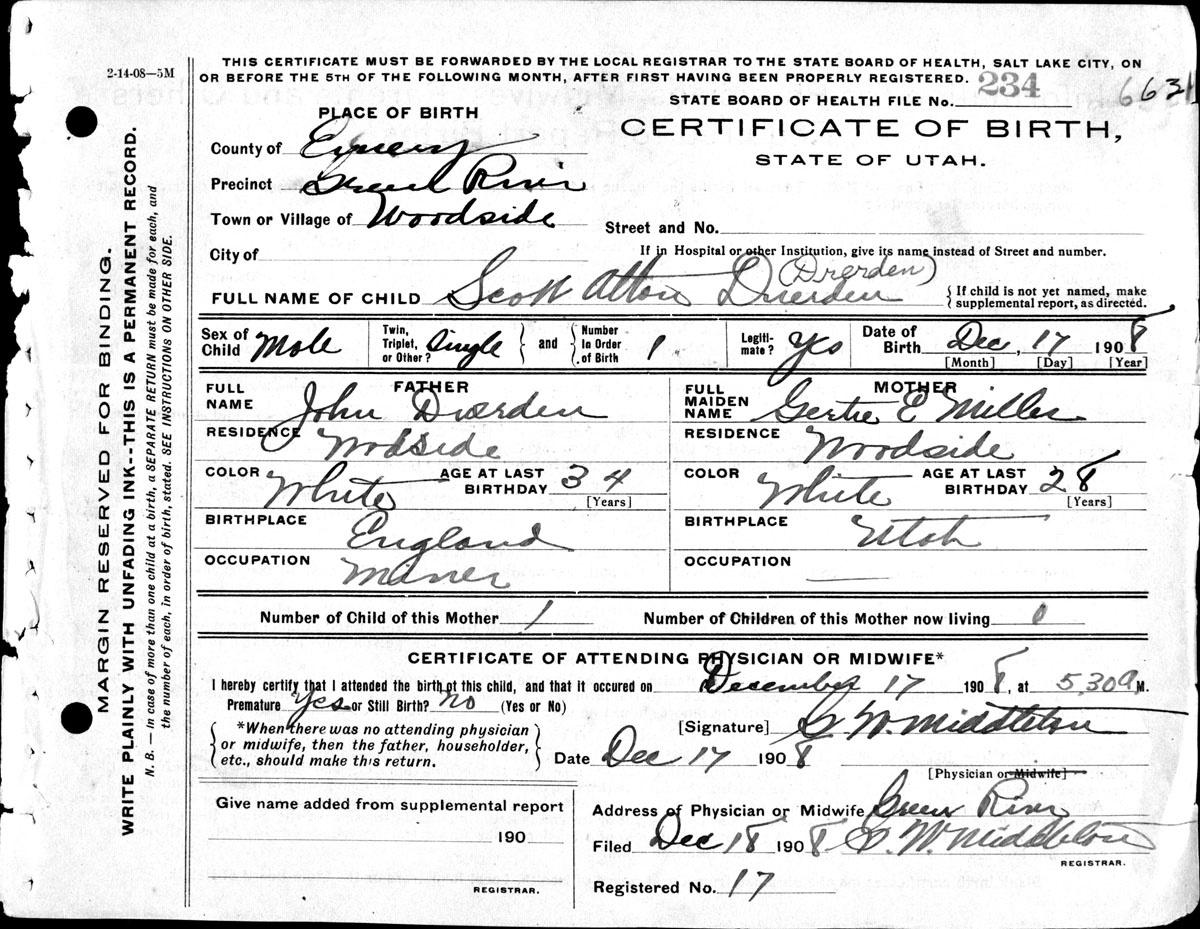 2-14-08—5M
THIS CERTIFICATE MUST BE FORWARDED BY THE LOCAL REGISTRAR TO THE STATE BOARD OF HEALTH, SALT LAKE CITY, ON
OR BEFORE THE 5TH OF THE FOLLOWING MONTH, AFTER FIRST HAVING BEEN PROPERLY REGISTERED.
STATE BOARD OF HEALTH FILE No. 234
6631
PLACE OF BIRTH
CERTIFICATE OF BIRTH,
STATE OF UTAH.
County of Emery
Precinct Green River
Town or Village of Woodside
Street and No.
City of
If in Hospital or other Institution, give its name instead of Street and number.
(Drerden)
FULL NAME OF CHILD Scott Alton Drerden
{ If child is not yet named, make supplemental report, as directed.
Sex of Child Male
Twin, Triplet, or Other? Single } and { Number In Order of Birth 1
Legiti-mate? Yes
Date of Birth Dec, 17 1908
[Month] [Day] [Year]
FATHER
FULL NAME John Drerden
RESIDENCE Wodside
COLOR White AGE AT LAST BIRTHDAY 34
[Years]
BIRTHPLACE England
OCCUPATION Miner
MOTHER
FULL MAIDEN NAME Gertie E Miller
RESIDENCE Woodside
COLOR White AGE AT LAST BIRTHDAY 28
[Years]
BIRTHPLACE Utah
OCCUPATION
Number of Child of this Mother 1 Number of Children of this Mother now living
CERTIFICATE OF ATTENDING PHYSICIAN OR MIDWIFE*
I hereby certify that I attended the birth of this child, and that it occured on December 17 1908, at 5,30 a M.
Premature Yes or Still Birth? No (Yes or No)
{ *When there was no attending physician or midwife, then the father, householder, etc., should make this return. }
[Signature] W. Middleton
Date Dec 17 1908
[Physician or Midwife]
Give name added from supplemental report
190
REGISTRAR.
Address of Physician or Midwife Green River
Filed Dec 18 1908 W. Middleton
REGISTRAR.
Registered No. 17
MARGIN RESERVED FOR BINDING.
WRITE PLAINLY WITH UNFADING INK---THIS IS A PERMANENT RECORD.
N. B. — In case of more than one child at a birth, a SEPARATE RETURN must be made for each, and
the number of each, in order of birth, stated. SEE INSTRUCTIONS ON OTHER SIDE.